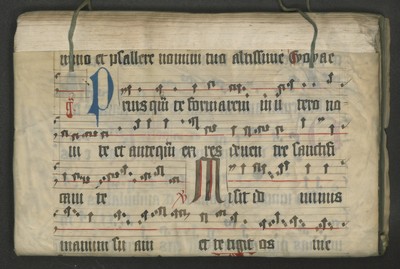 mino et psallere nomini tuo altissime Evovae
Priusqua te formarem in utero no
ui te et antequa exires de uentre sanctifi
caui te Misit do minus
manum su am et te tigit os me